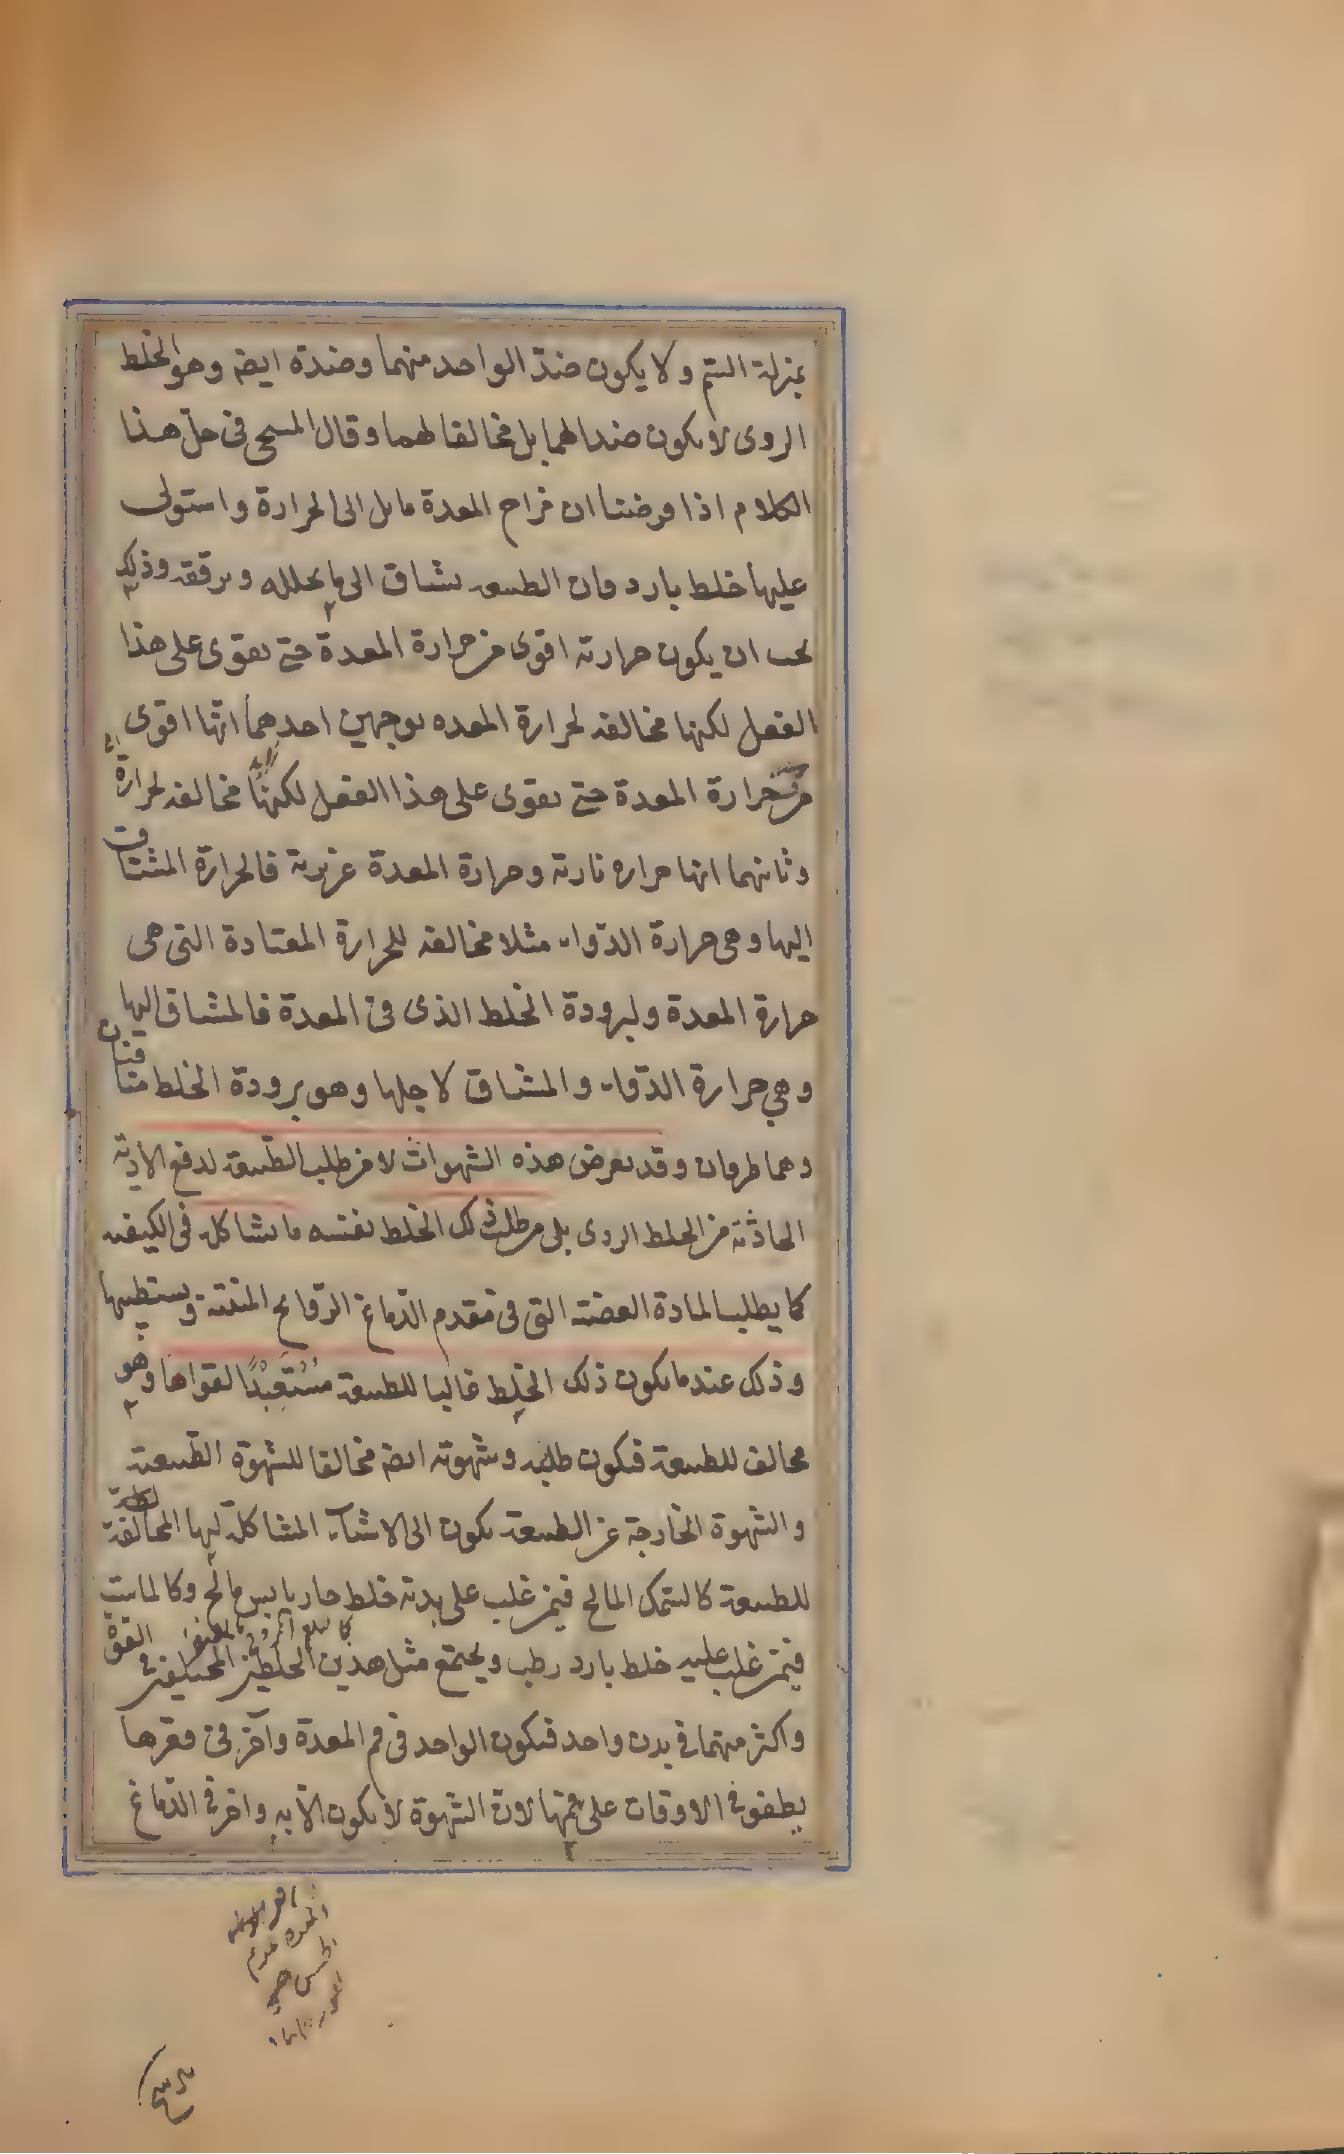 بمنزلة السم ولا يكون ضد الواحد منهما وضده ايضا وهو الخلط
الردى لا يكون ضدا لهما بل مخالفا لهما وقال المسيحى فى حل هذا
الكلام اذا فرضنا ان مزاج المعدة مايل الى الحرارة واستولى
عليها خلط بارد فان الطبيعه تشتاق الى ما يحلله ويرققه وذلك
يجب ان يكون حرارته اقوى من حرارة المعدة حتى يقوى على هذا
الفعل لكنها مخالفه لحرارة المعده بوجهين احدهما انها اقوى
من حرارة المعدة حتى يقوى على هذا الفعل لكنها مخالفه لحرارة
وثانيهما انها حراره نارية وحرارة المعدة غريزية فالحرارة المشتاق
اليها وهى حرارة الدواء مثلا مخالفه للحرارة المعتادة التى هى
حرارة المعدة ولبرودة الخلط الذى فى المعدة فالمشتاق اليها
وهى حرارة الدواء والمشتاق لاجلها وهو برودة الخلط متنافيان
وهما طرفان وقد يعرض هذه الشهوات لا من طلب الطبيعة لدفع الاذية
الحادثة من الخلط الردى بل من طلب ذلك الخلط نفسه ما يشاكله فى الكيفيه
كما يطلب المادة العفنة التى فى مقدم الدماغ الروائح المنتنة ويستطيبها
وذلك عندما يكون ذلك الخلط غالبا للطبيعة مستعبدا لقواها وهو
مخالف للطبيعة فيكون طلبه وشهوته ايضا مخالفا للشهوة الطبيعية
والشهوة الخارجة عن الطبيعة يكون الى الاشياء المشاكلة لها المخالفة
للطبيعة كالسمك المالح فيمن غلب على بدنه خلط حار يابس مالح وكالمايت
فيمن غلب عليه خلط بارد رطب ويجتمع مثل هذين الخلطين المختلفين
واكثر منهما فى بدن واحد فيكون الواحد فى فم المعدة وآخر فى قعرها
يطفو فى الاوقات على فمها لان الشهوة لا يكون الا به واخر فى الدماغ